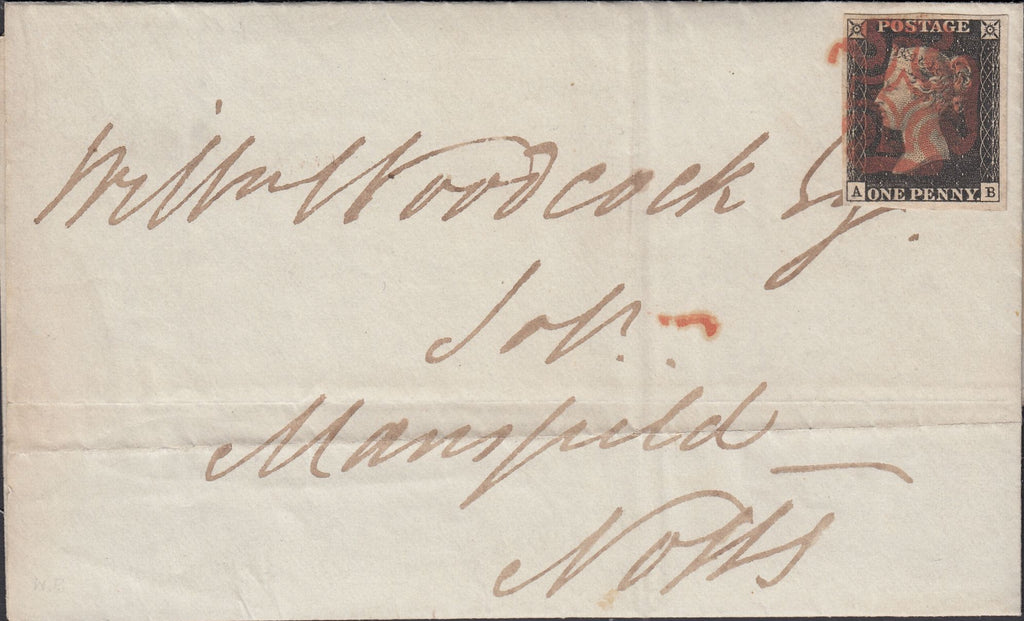 POSTAGE
A ONE PENNY. B
Willm Woodcock Esq.
Solr.
Mansfield
Notts